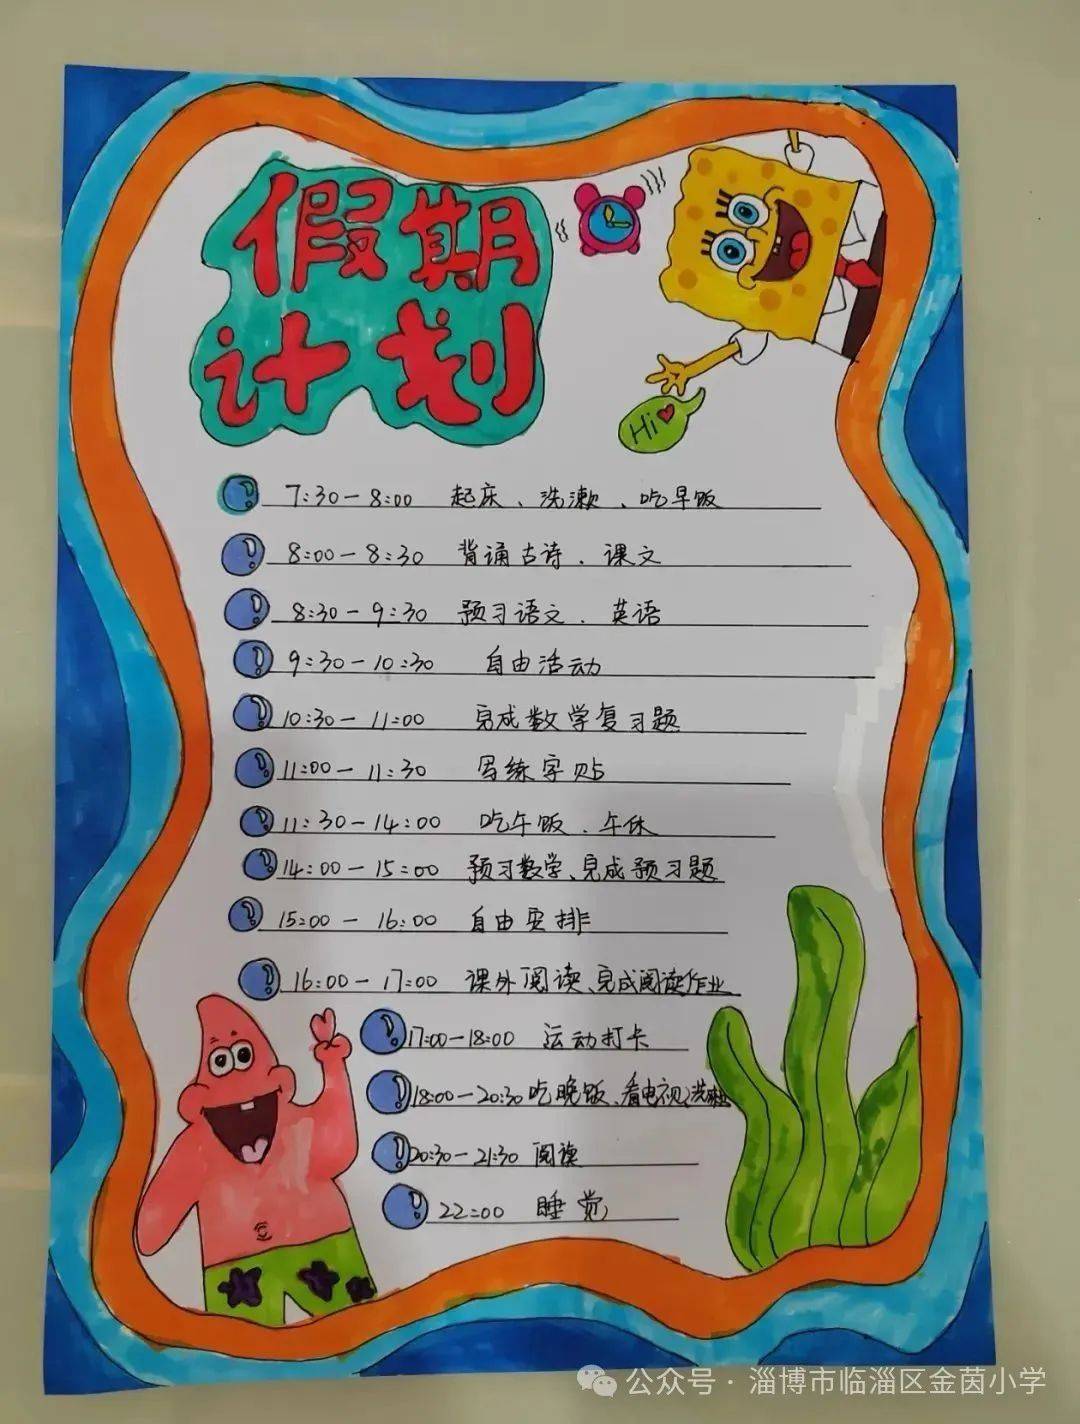 假期
计划
Hi
7:30-8:00 起床、洗漱、吃早饭
8:00-8:30 背诵古诗．课文
8:30-9:30 预习语文．英语
9:30-10:30 自由活动
10:30-11:00 完成数学复习题
11:00-11:30 写练字贴
11:30-14:00 吃午饭．午休
14:00-15:00 预习数学、完成预习题
15:00-16:00 自由安排
16:00-17:00 课外阅读、完成阅读作业
17:00-18:00 运动打卡
18:00-20:30 吃晚饭、看电视、洗漱
20:30-21:30 阅读
22:00 睡觉
公众号·淄博市临淄区金茵小学